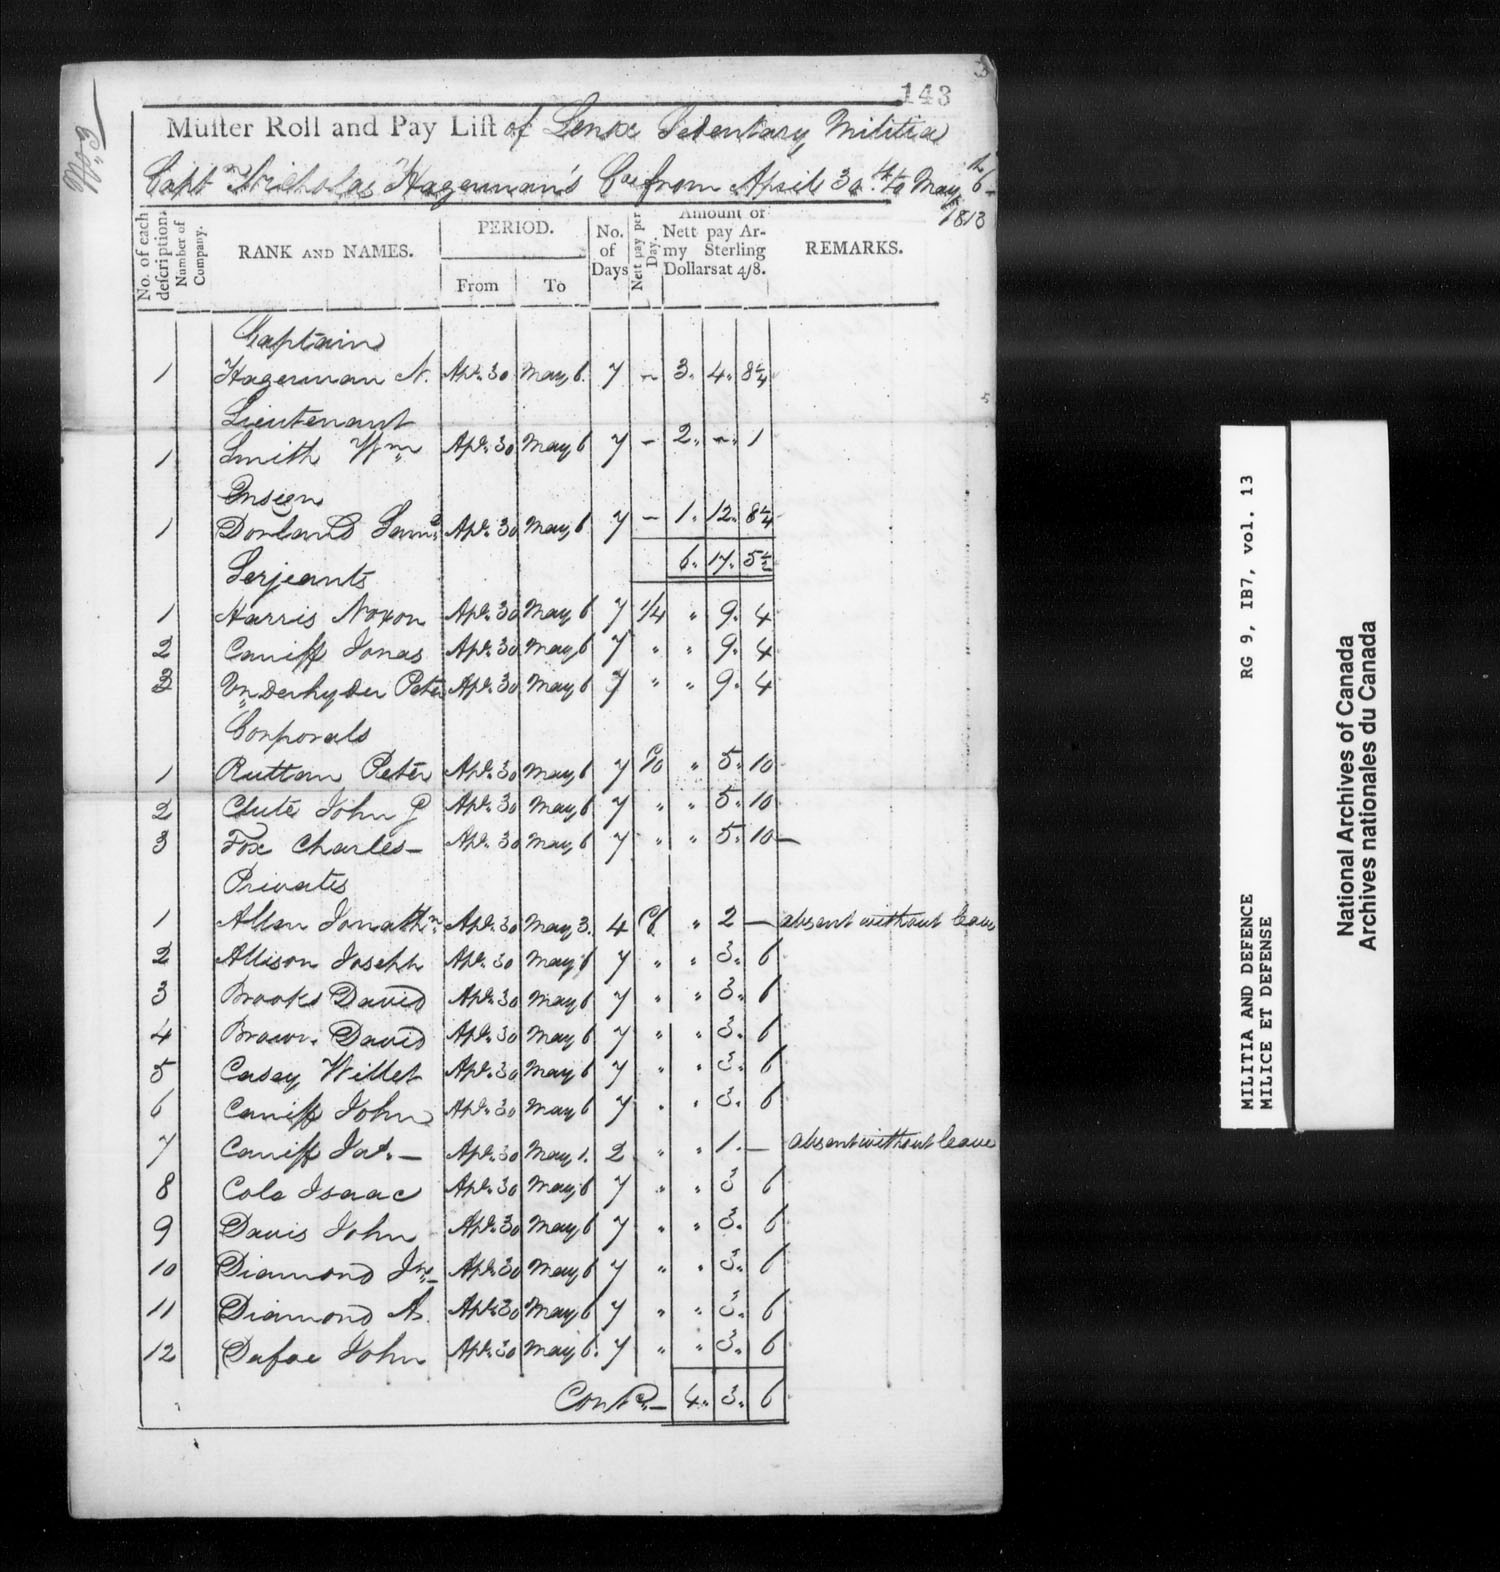 143
No. 3
Muster Roll and Pay List of Lenox Sedentary Militia
Capt Nicholas Hagerman's Coe from April 30th to May 6th
1813
No. of each description. Number of Company. RANK AND NAMES. PERIOD. From To No. of Days Nett pay per Day. Amount of Nett pay Army Sterling Dollars at 4/8. REMARKS.
Captain
1 Hagerman N. Apl. 30 May 6. 7 – 3. 4. 8¼
Lieutenant
1 Smith Wm Apl. 30 May 6 7 – 2. –. 1
Ensign
1 Dorland Saml Apl. 30 May 6 7 – 1. 12. 8¼
6. 17. 5½
Serjeants
1 Harris Noxon Apl. 30 May 6 7 1/4 " 9. 4
2 Caniff Jonas Apl. 30 May 6 7 " " 9. 4
3 Vn Derhyder Peter Apl. 30 May 6 7 " " 9. 4
Corporals
1 Ruttan Peter Apl. 30 May 6 7 " 5. 10
2 Clute John G Apl. 30 May 6 7 " " 5. 10
3 Fox Charles – Apl. 30 May 6 7 " " 5. 10 –
Privates
1 Allen Jonathn Apl. 30 May 3. 4 /6 " 2 – absent without leave
2 Allison Joseph Apl. 30 May 6 7 " " 3. 6
3 Brooks David Apl. 30 May 6 7 " " 3. 6
4 Brown David Apl. 30 May 6 7 " " 3. 6
5 Casey Willet Apl. 30 May 6 7 " " 3. 6
6 Caniff John Apl. 30 May 6 7 " " 3. 6
7 Caniff Jas. – Apl. 30 May 1. 2 " " 1. – absent without leave
8 Cole Isaac Apl. 30 May 6 7 " " 3 6
9 Davis John Apl. 30 May 6 7 " " 3. 6
10 Diamond Jno – Apl. 30 May 6 7 " " 3. 6
11 Diamond A. Apl. 30 May 6 7 " " 3. 6
12 Dafoe John Apl. 30 May 6. 7 " " 3. 6
4. 3. 6
RG 9, IB7, vol. 13
MILITIA AND DEFENCE
MILICE ET DEFENSE
National Archives of Canada
Archives nationales du Canada